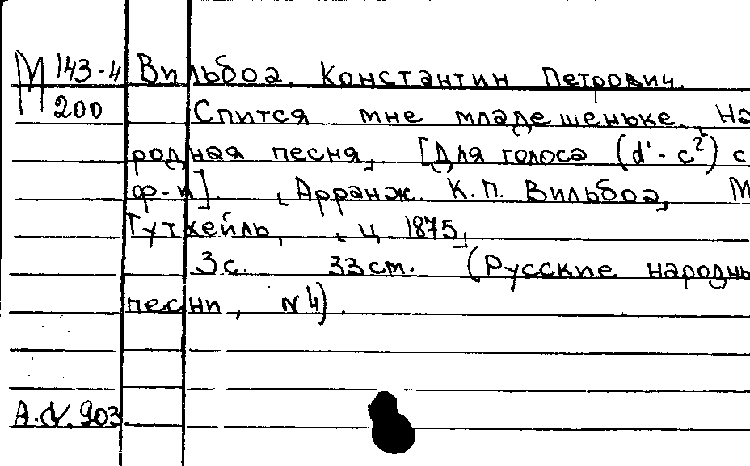 М 143-4 Вильбоа. Константин Петрович.
200 Спится мне младешеньке. На
родная песня, [Для голоса (d'-c²) с
ф-п]. Арранж. К.П. Вильбоа, М
Гутхейль, ц. 1875,
3с. 33cm. (Русские народны
песни, N4).
A.N. 903